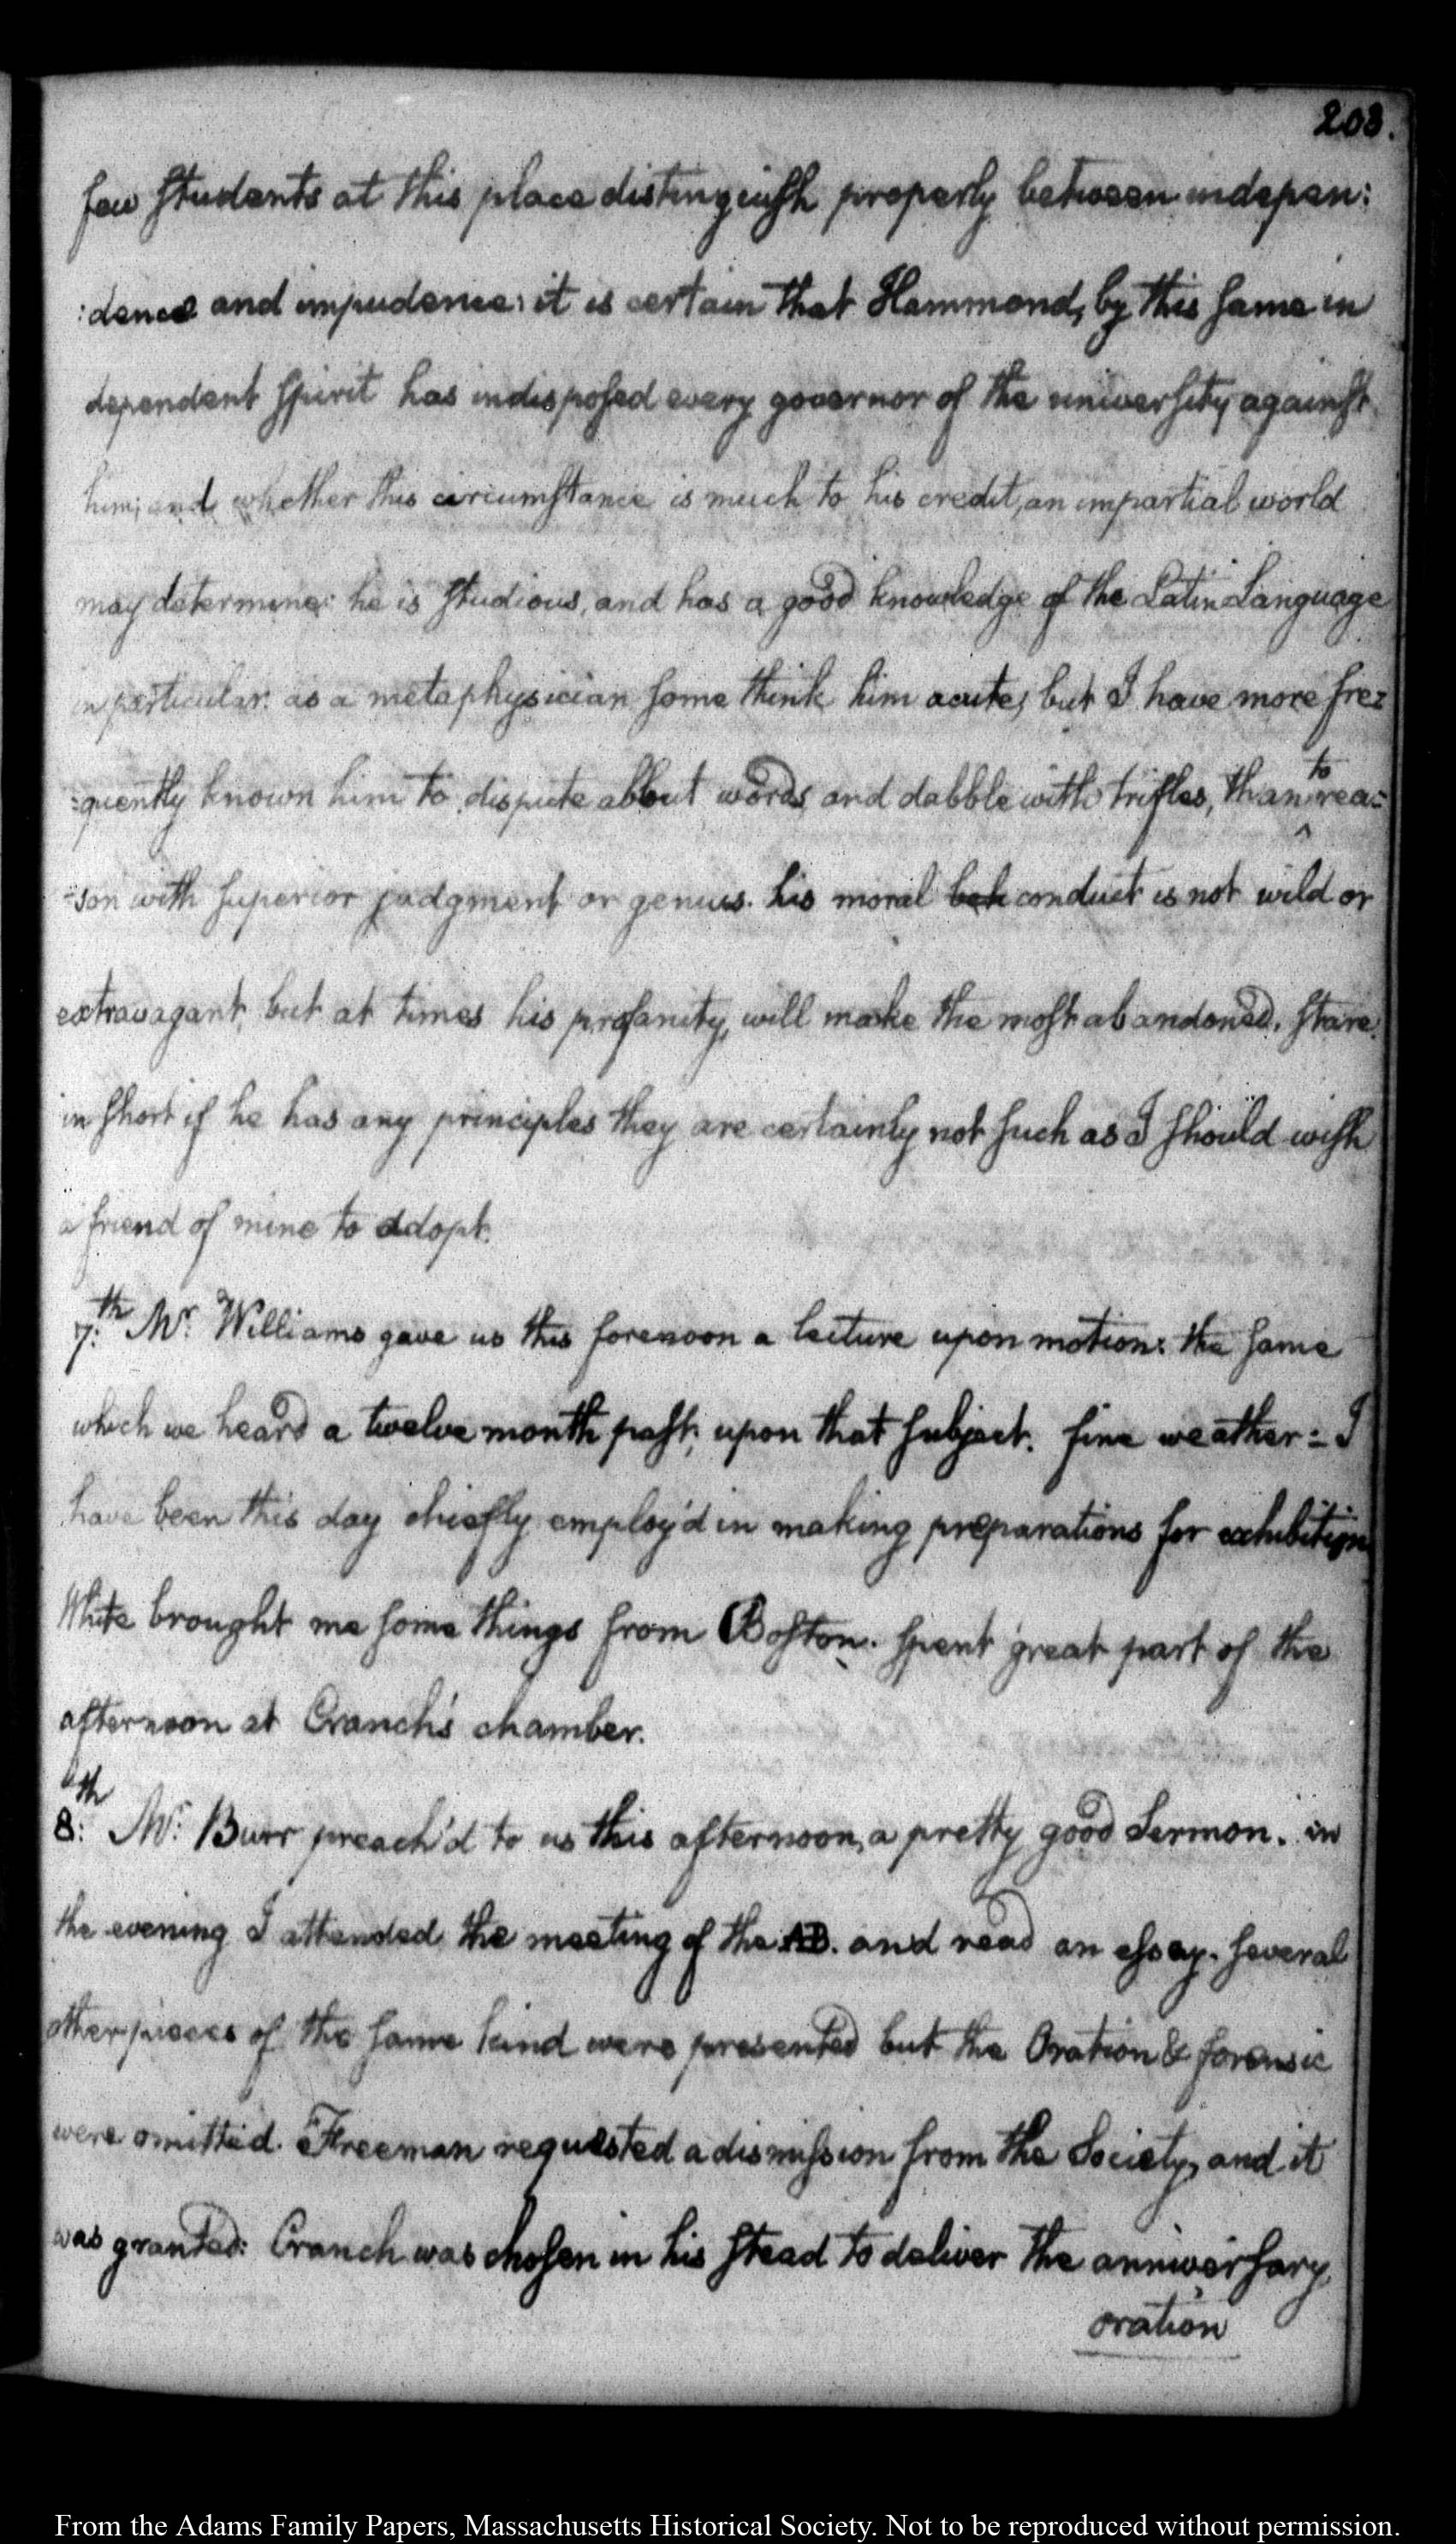 203.
few students at this place distinguish properly between indepen:
:dence and impudence: it is certain that Hammond, by this same in
dependent spirit has indisposed every governor of the university against
him; and whether this circumstance is much to his credit, an impartial world
may determine: he is studious, and has a good knowledge of the Latin Language
in particular: as a metaphysician some think him acute, but I have more fre=
=quently known him to dispute about words, and dabble with trifles, than to rea=
=son with superior judgment or genius. his moral beh conduct is not wild or
extravagant, but at times his profanity, will make the most abandoned, stare.
in short if he has any principles they are certainly not such as I should wish
a friend of mine to adopt.
7:th Mr. Williams gave us this forenoon a lecture upon motion: the same
which we heard a twelve month past, upon that subject. fine weather = I
have been this day chiefly employ'd in making preparations for exhibition
White brought me some things from Boston. spent great part of the
afternoon at Cranch's chamber.
8:th Mr. Burr preach'd to us this afternoon, a pretty good Sermon. in
the evening I attended the meeting of the AB. and read an essay. several
other pieces of the same kind were presented but the Oration & forensic
were omitted. Freeman requested a dismission from the Society, and it
was granted: Cranch was chosen in his stead to deliver the anniversary
oration
From the Adams Family Papers, Massachusetts Historical Society. Not to be reproduced without permission.